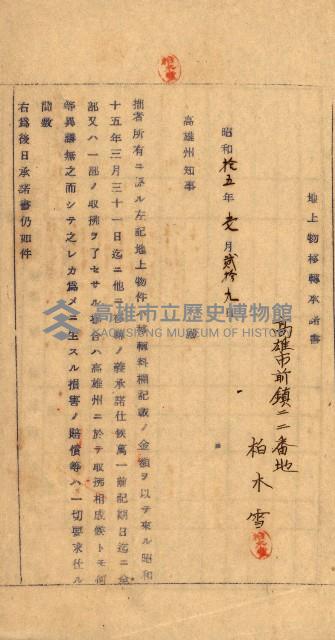 地上物移轉承諾書
高雄市前鎮二二番地
柏木雪
昭和拾五年壱月貳拾九日
高雄州知事 殿
拙者所有ニ係ル左記地上物件移轉料欄記載ノ金額ヲ以テ來ル昭和
十五年三月三十一日迄ニ他ニ移轉ノ義承諾仕候萬一前記期日迄ニ全
部又ハ一部ノ取拂ヲ了セサル場合ハ高雄州ニ於テ取拂相成候トモ何
等異議無之而シテ之レカ爲メニ生スル損害ノ賠償等ハ一切要求仕ル
間敷
右爲後日承諾書仍如件
高雄市立歷史博物館
KAOHSIUNG MUSEUM OF HISTORY